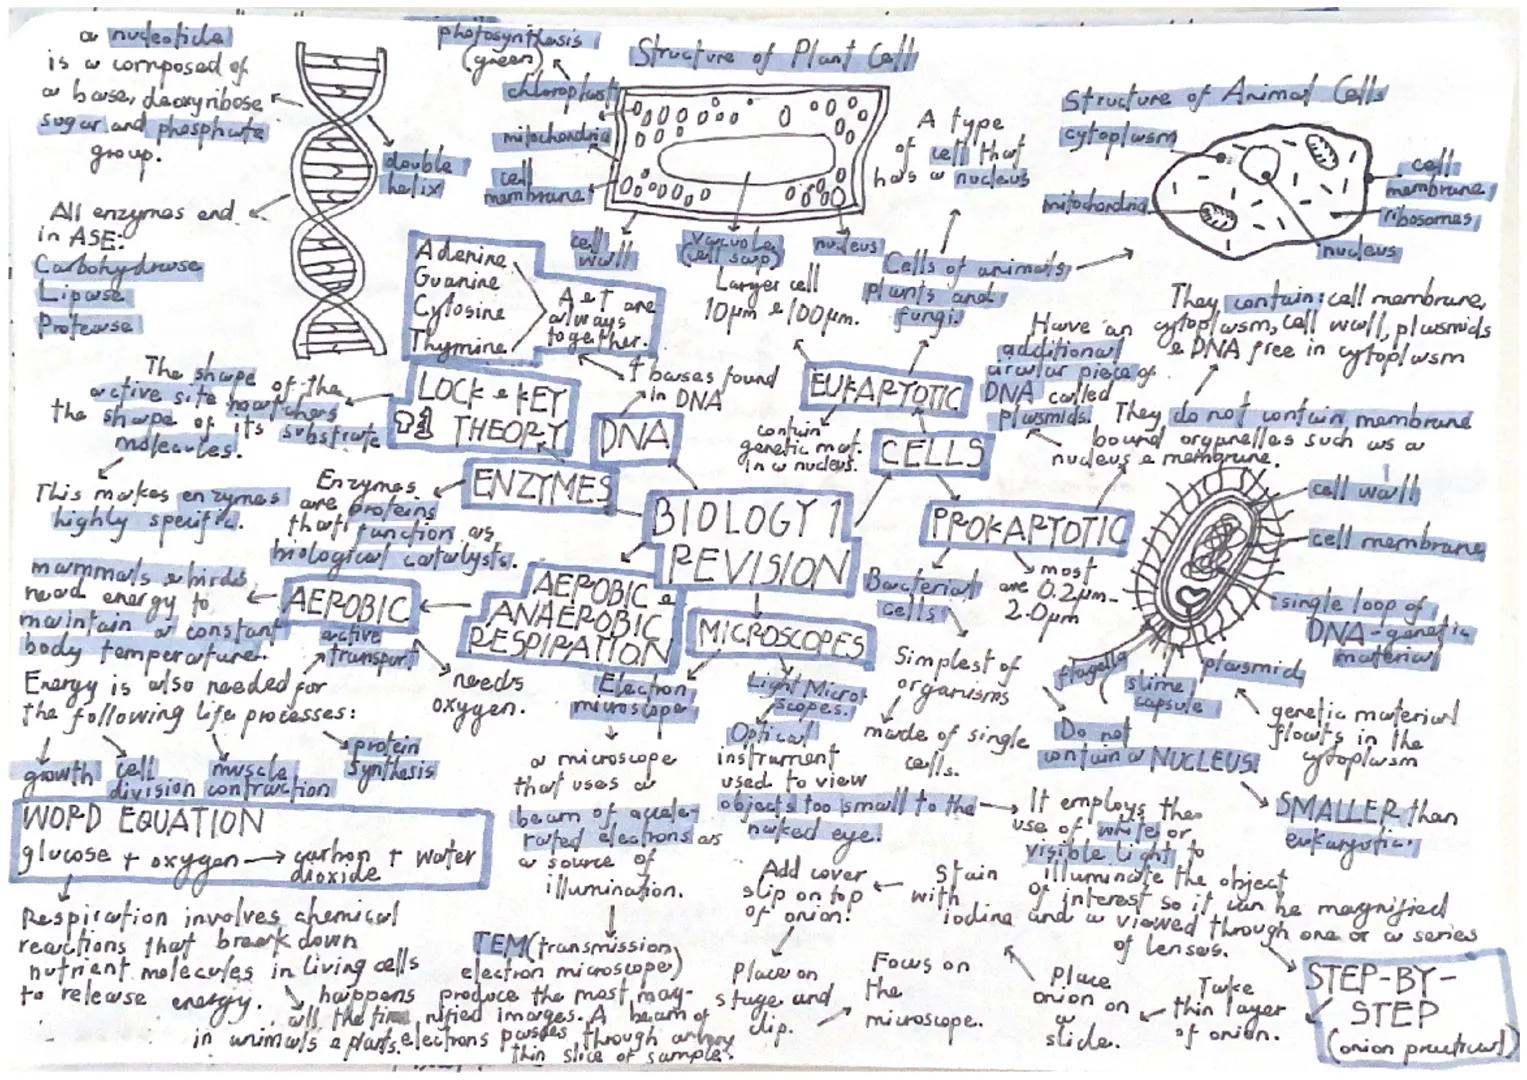 a nucleotide
is a composed of
a base, deoxyribose
sugar and phosphate
group.
double
helix
All enzymes end
in ASE:
Carbohydrase
Lipase
Protease
photosynthesis
(green)
Structure of Plant Cell
chloroplast
mitochondria
cell
membrane
cell
wall
vacuole
(cell sap)
nucleus
Larger cell
10μm e 100μm.
A type
of cell that
has a nucleus
Cells of animals
plants and
fungi.
Structure of Animal Cells
cytoplasm
mitochondria
cell
membrane
ribosomes
nucleus
Adenine
Guanine
Cytosine
Thymine
A e T are
always
together.
bases found
in DNA
DNA
LOCK e KEY
THEORY
The shape of the
active site matches
the shape of its substrate
molecules.
This makes enzymes
highly specific.
ENZYMES
Enzymes
are proteins
that function as
biological catalysts.
BIOLOGY 1
REVISION
EUKARYOTIC
contain
genetic mat.
in a nucleus.
CELLS
Have an
additional
circular piece of
DNA called
plasmids.
They contain: cell membrane,
cytoplasm, cell wall, plasmids
e DNA free in cytoplasm
They do not contain membrane
bound organelles such as a
nucleus e membrane.
PROKARYOTIC
Bacterial
cells
most
are 0.2μm-
2.0μm
cell wall
cell membrane
single loop of
DNA-genetic
material
plasmid
slime
capsule
flagella
genetic material
floats in the
cytoplasm
Simplest of
organisms
made of single
cells.
Do not
contain a NUCLEUS.
SMALLER than
eukaryotic.
AEROBIC e
ANAEROBIC
RESPIRATION
AEROBIC
needs
oxygen.
mammals e birds
need energy to
maintain a constant
body temperature.
active
transport
Energy is also needed for
the following life processes:
growth
cell
division
muscle
contraction
protein
synthesis
WORD EQUATION
glucose + oxygen → carbon dioxide + water
Respiration involves chemical
reactions that break down
nutrient molecules in living cells
to release energy.
happens
all the time
in animals e plants.
MICROSCOPES
Electron
microscope
a microscope
that uses a
beam of accele-
rated electrons as
a source of
illumination.
TEM (transmission
electron microscope)
produce the most mag-
nified images. A beam of
electrons passes through a very
thin slice of sample.
Light Micro-
scopes.
Optical
instrument
used to view
objects too small to the
naked eye.
It employs the
use of white or
visible light to
illuminate the object
of interest so it can be magnified
and a viewed through one or a series
of lenses.
STEP-BY-
STEP
(onion practical)
Take
thin layer
of onion.
Place
onion on
a
slide.
Stain
with
iodine
Add cover
slip on top
of onion.
Place on
stage and
clip.
Focus on
the
microscope.